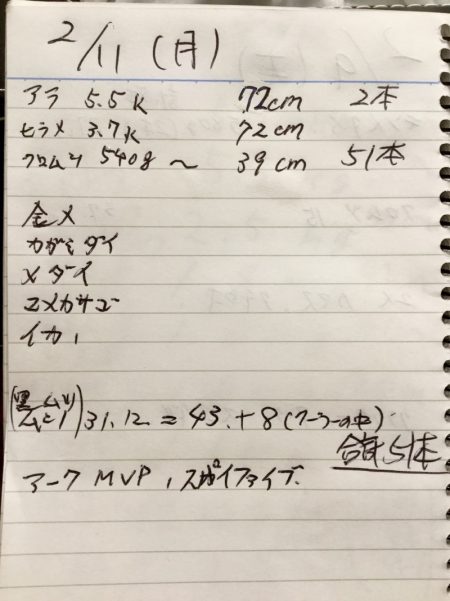 2/11 (月)
アラ 5.5K 72cm 2本
ヒラメ 3.7K 72cm
クロムツ 540g ～ 39cm 51本
金メ
カガミダイ
メダイ
ユメカサゴ
イカ,
(黒ムツ) 31.12 = 43.+8 (クーラーの中)
合計 51本
アーク MVP, スパイファイブ.